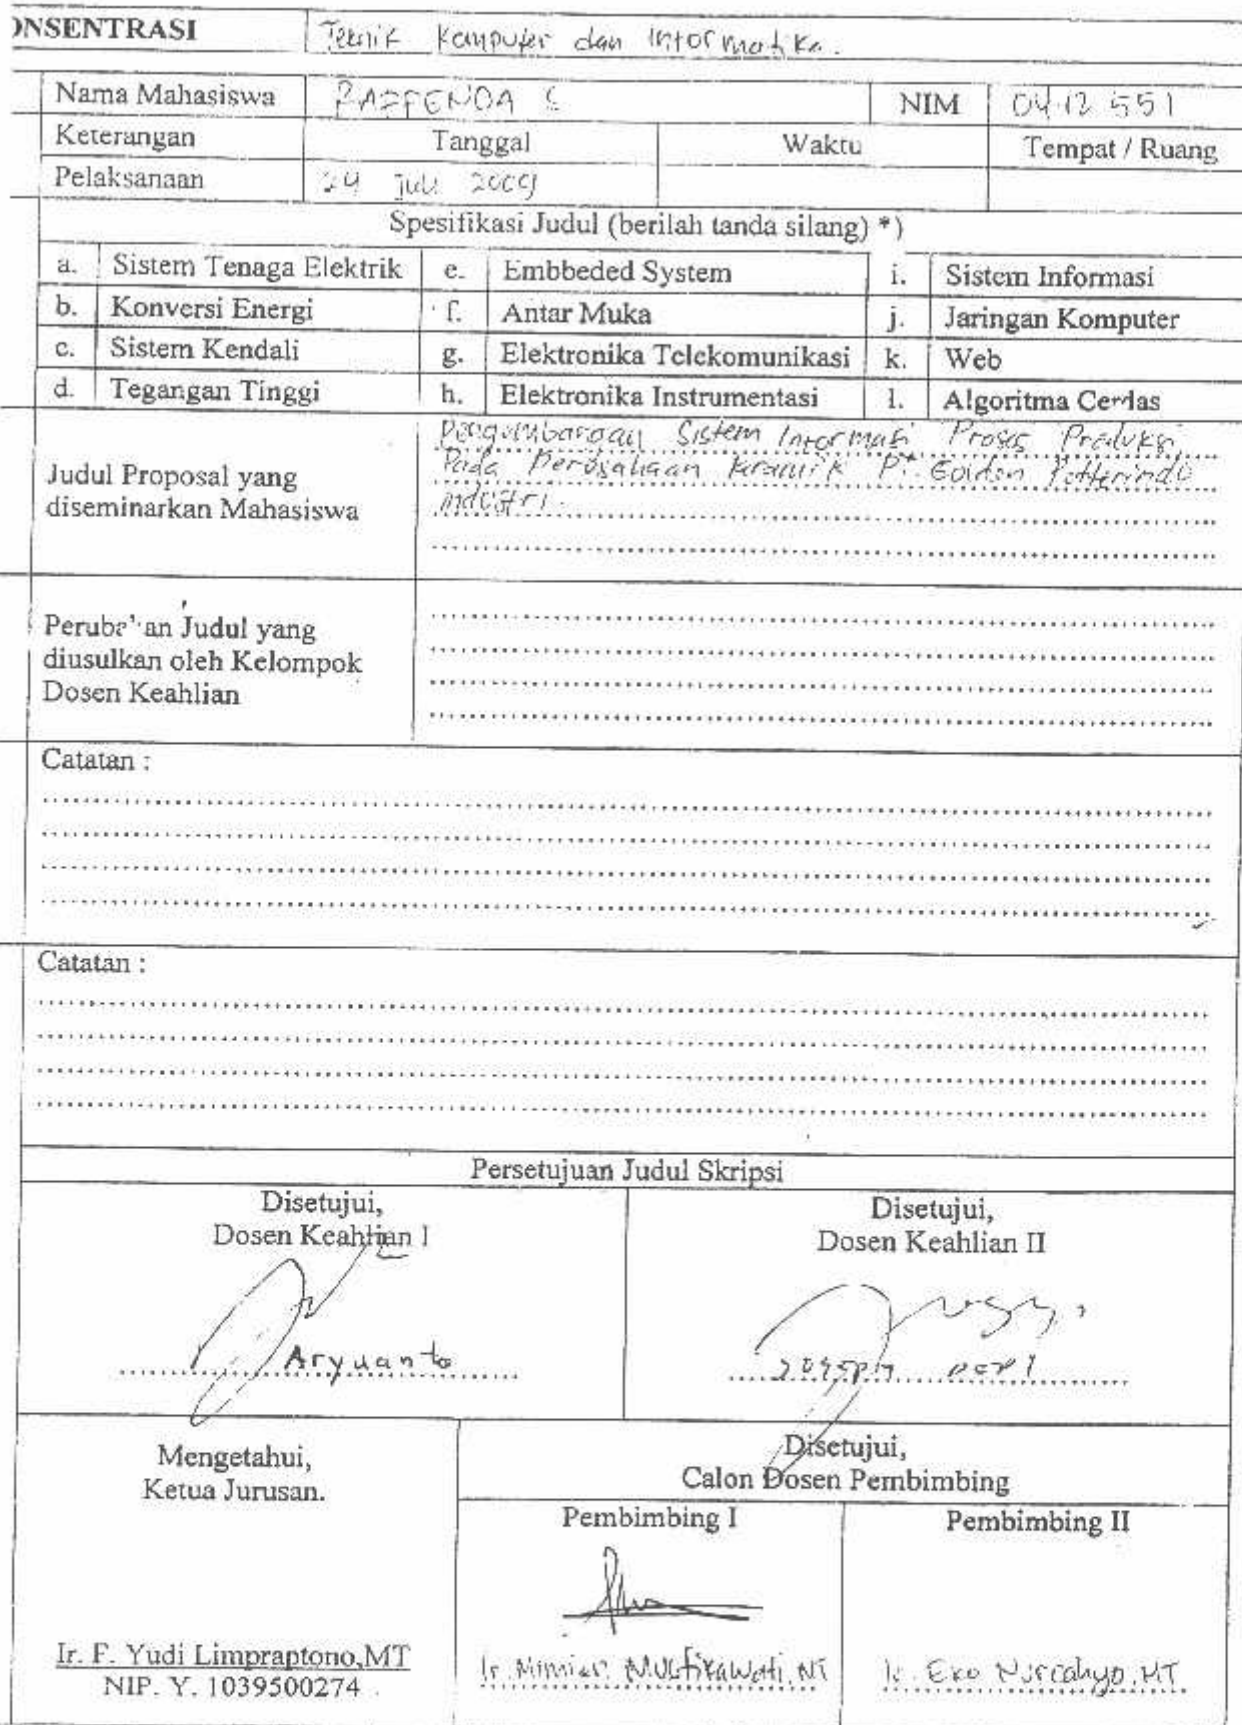 ONSENTRASI Teknik Komputer dan Informatika.
Nama Mahasiswa RAFFENDA S NIM 04.12.551
Keterangan Tanggal Waktu Tempat / Ruang
Pelaksanaan 24 Juli 2009
Spesifikasi Judul (berilah tanda silang) *)
a. Sistem Tenaga Elektrik e. Embbeded System i. Sistem Informasi
b. Konversi Energi f. Antar Muka j. Jaringan Komputer
c. Sistem Kendali g. Elektronika Telekomunikasi k. Web
d. Tegangan Tinggi h. Elektronika Instrumentasi l. Algoritma Cerdas
Judul Proposal yang
diseminarkan Mahasiswa
Pengembangan Sistem Informasi Proses Produksi
Pada Perusahaan Keramik PT. Golden Potterindo
Industri.
Perubahan Judul yang
diusulkan oleh Kelompok
Dosen Keahlian
Catatan :
Catatan :
Persetujuan Judul Skripsi
Disetujui,
Dosen Keahlian I
Aryuanto
Disetujui,
Dosen Keahlian II
Mengetahui,
Ketua Jurusan.
Ir. F. Yudi Limpraptono,MT
NIP. Y. 1039500274
Disetujui,
Calon Dosen Pembimbing
Pembimbing I
Ir. Mimien Mustikawati, MT
Pembimbing II
Ir. Eko Nurcahyo, MT